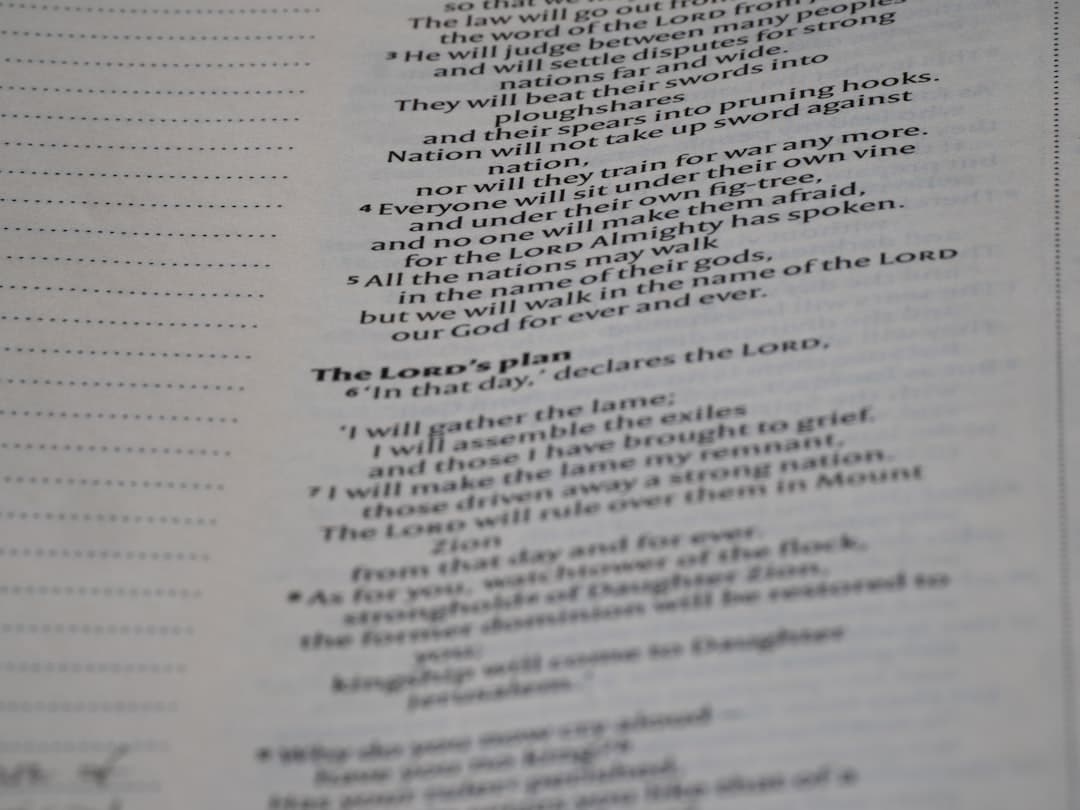 so that we
The law will go out from
the word of the LORD from
³ He will judge between many peoples
and will settle disputes for strong
nations far and wide.
They will beat their swords into
ploughshares
and their spears into pruning hooks.
Nation will not take up sword against
nation,
nor will they train for war any more.
⁴ Everyone will sit under their own vine
and under their own fig-tree,
and no one will make them afraid,
for the LORD Almighty has spoken.
⁵ All the nations may walk
in the name of their gods,
but we will walk in the name of the LORD
our God for ever and ever.
The LORD’s plan
⁶ ‘In that day,’ declares the LORD,
‘I will gather the lame;
I will assemble the exiles
and those I have brought to grief.
⁷ I will make the lame my remnant,
those driven away a strong nation.
The LORD will rule over them in Mount
Zion
from that day and for ever.
⁸ As for you, watchtower of the flock,
stronghold of Daughter Zion,
the former dominion will be restored to
you;
kingship will come to Daughter
Jerusalem.’
⁹ Why do you now cry aloud –
have you no king